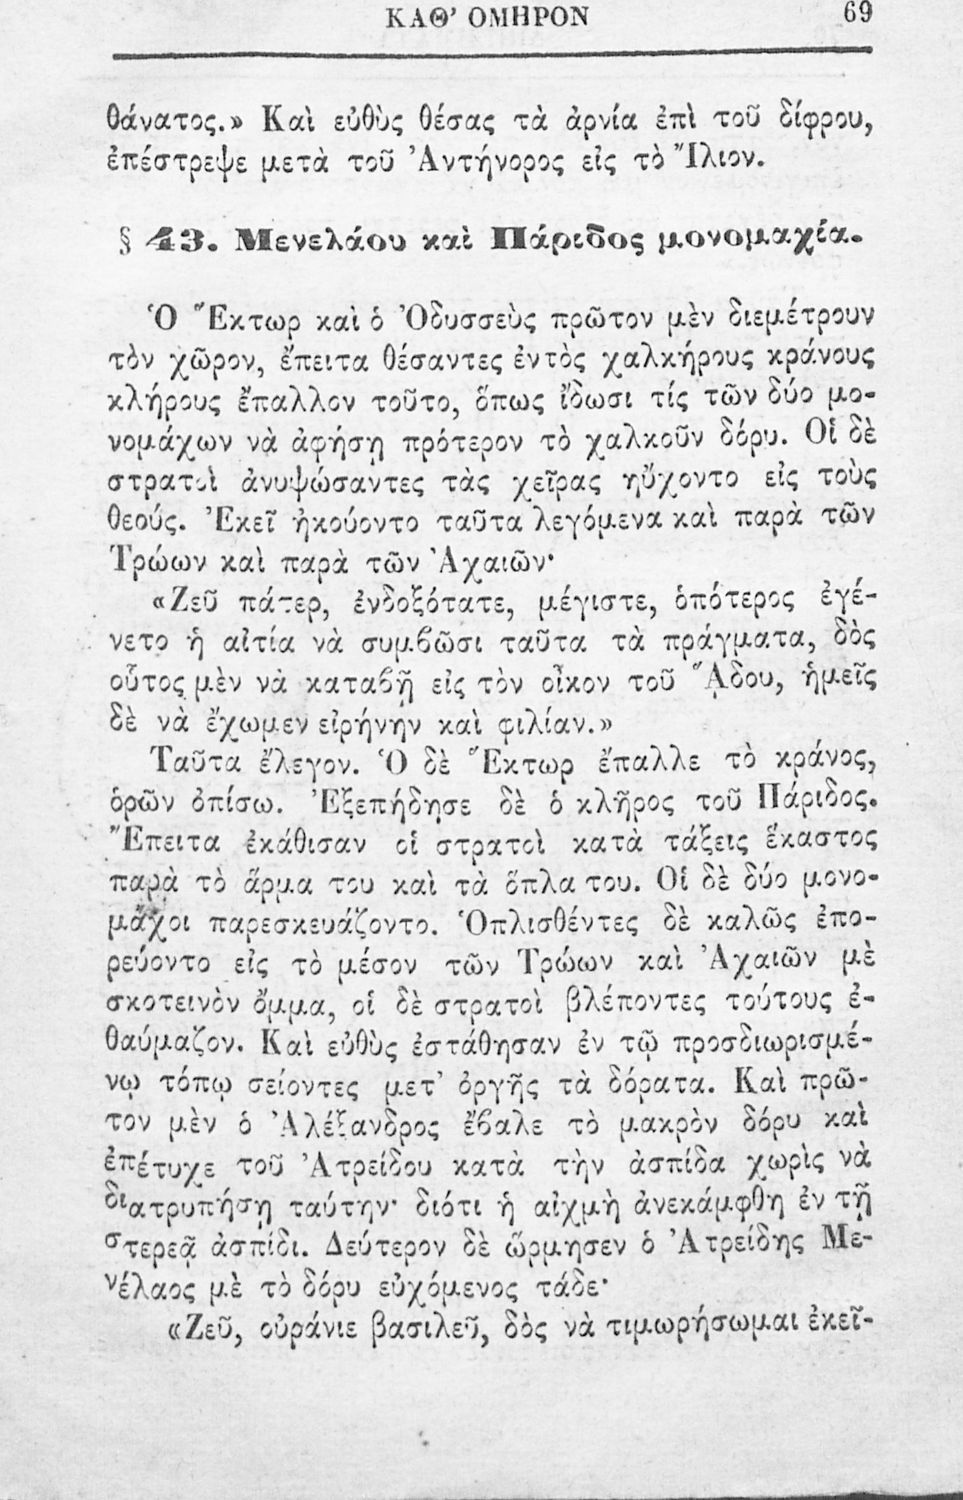 ΚΑΘ’ ΟΜΗΡΟΝ 69
θάνατος.» Καὶ εὐθὺς θέσας τὰ ἀρνία ἐπὶ τοῦ δίφρου,
ἐπέστρεψε μετὰ τοῦ Ἀντήνορος εἰς τὸ Ἴλιον.
§ 43. Μενελάου καὶ Πάριδος μονομαχία.
Ὁ Ἕκτωρ καὶ ὁ Ὀδυσσεὺς πρῶτον μὲν διεμέτρουν
τὸν χῶρον, ἔπειτα θέσαντες ἐντὸς χαλκήρους κράνους
κλήρους ἔπαλλον τοῦτο, ὅπως ἴδωσι τίς τῶν δύο μο-
νομάχων νὰ ἀφήσῃ πρότερον τὸ χαλκοῦν δόρυ. Οἱ δὲ
στρατοὶ ἀνυψώσαντες τὰς χεῖρας ηὔχοντο εἰς τοὺς
θεούς. Ἐκεῖ ἠκούοντο ταῦτα λεγόμενα καὶ παρὰ τῶν
Τρώων καὶ παρὰ τῶν Ἀχαιῶν·
«Ζεῦ πάτερ, ἐνδοξότατε, μέγιστε, ὁπότερος ἐγέ-
νετο ἡ αἰτία νὰ συμβῶσι ταῦτα τὰ πράγματα, δὸς
οὗτος μὲν νὰ καταβῇ εἰς τὸν οἶκον τοῦ ᾍδου, ἡμεῖς
δὲ νὰ ἔχωμεν εἰρήνην καὶ φιλίαν.»
Ταῦτα ἔλεγον. Ὁ δὲ Ἕκτωρ ἔπαλλε τὸ κράνος,
ὁρῶν ὀπίσω. Ἐξεπήδησε δὲ ὁ κλῆρος τοῦ Πάριδος.
Ἔπειτα ἐκάθισαν οἱ στρατοὶ κατὰ τάξεις ἕκαστος
παρὰ τὸ ἅρμα του καὶ τὰ ὅπλα του. Οἱ δὲ δύο μονο-
μάχοι παρεσκευάζοντο. Ὁπλισθέντες δὲ καλῶς ἐπο-
ρεύοντο εἰς τὸ μέσον τῶν Τρώων καὶ Ἀχαιῶν μὲ
σκοτεινὸν ὄμμα, οἱ δὲ στρατοὶ βλέποντες τούτους ἐ-
θαύμαζον. Καὶ εὐθὺς ἐστάθησαν ἐν τῷ προσδιωρισμέ-
νῳ τόπῳ σείοντες μετ’ ὀργῆς τὰ δόρατα. Καὶ πρῶ-
τον μὲν ὁ Ἀλέξανδρος ἔβαλε τὸ μακρὸν δόρυ καὶ
ἐπέτυχε τοῦ Ἀτρείδου κατὰ τὴν ἀσπίδα χωρὶς νὰ
διατρυπήσῃ ταύτην· διότι ἡ αἰχμὴ ἀνεκάμφθη ἐν τῇ
στερεᾷ ἀσπίδι. Δεύτερον δὲ ὥρμησεν ὁ Ἀτρείδης Με-
νέλαος μὲ τὸ δόρυ εὐχόμενος τάδε·
«Ζεῦ, οὐράνιε βασιλεῦ, δὸς νὰ τιμωρήσωμαι ἐκεῖ-